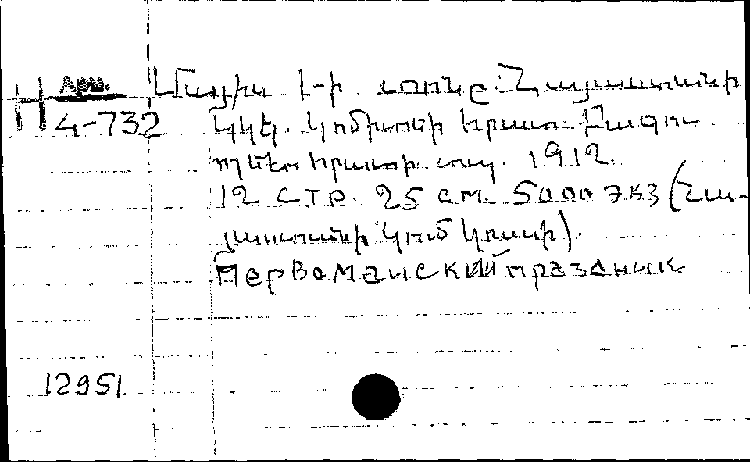 Н Арм.
4-732
Մայիս 1-ի տոնը Հայաստանի
կկե. կոմիտեի հրատ. Բաքու
տպ. 1912.
12 стр. 25 см. 5000 экз (Հա-
յաստանի կոմ կուսի).
Первомайский праздник
12951